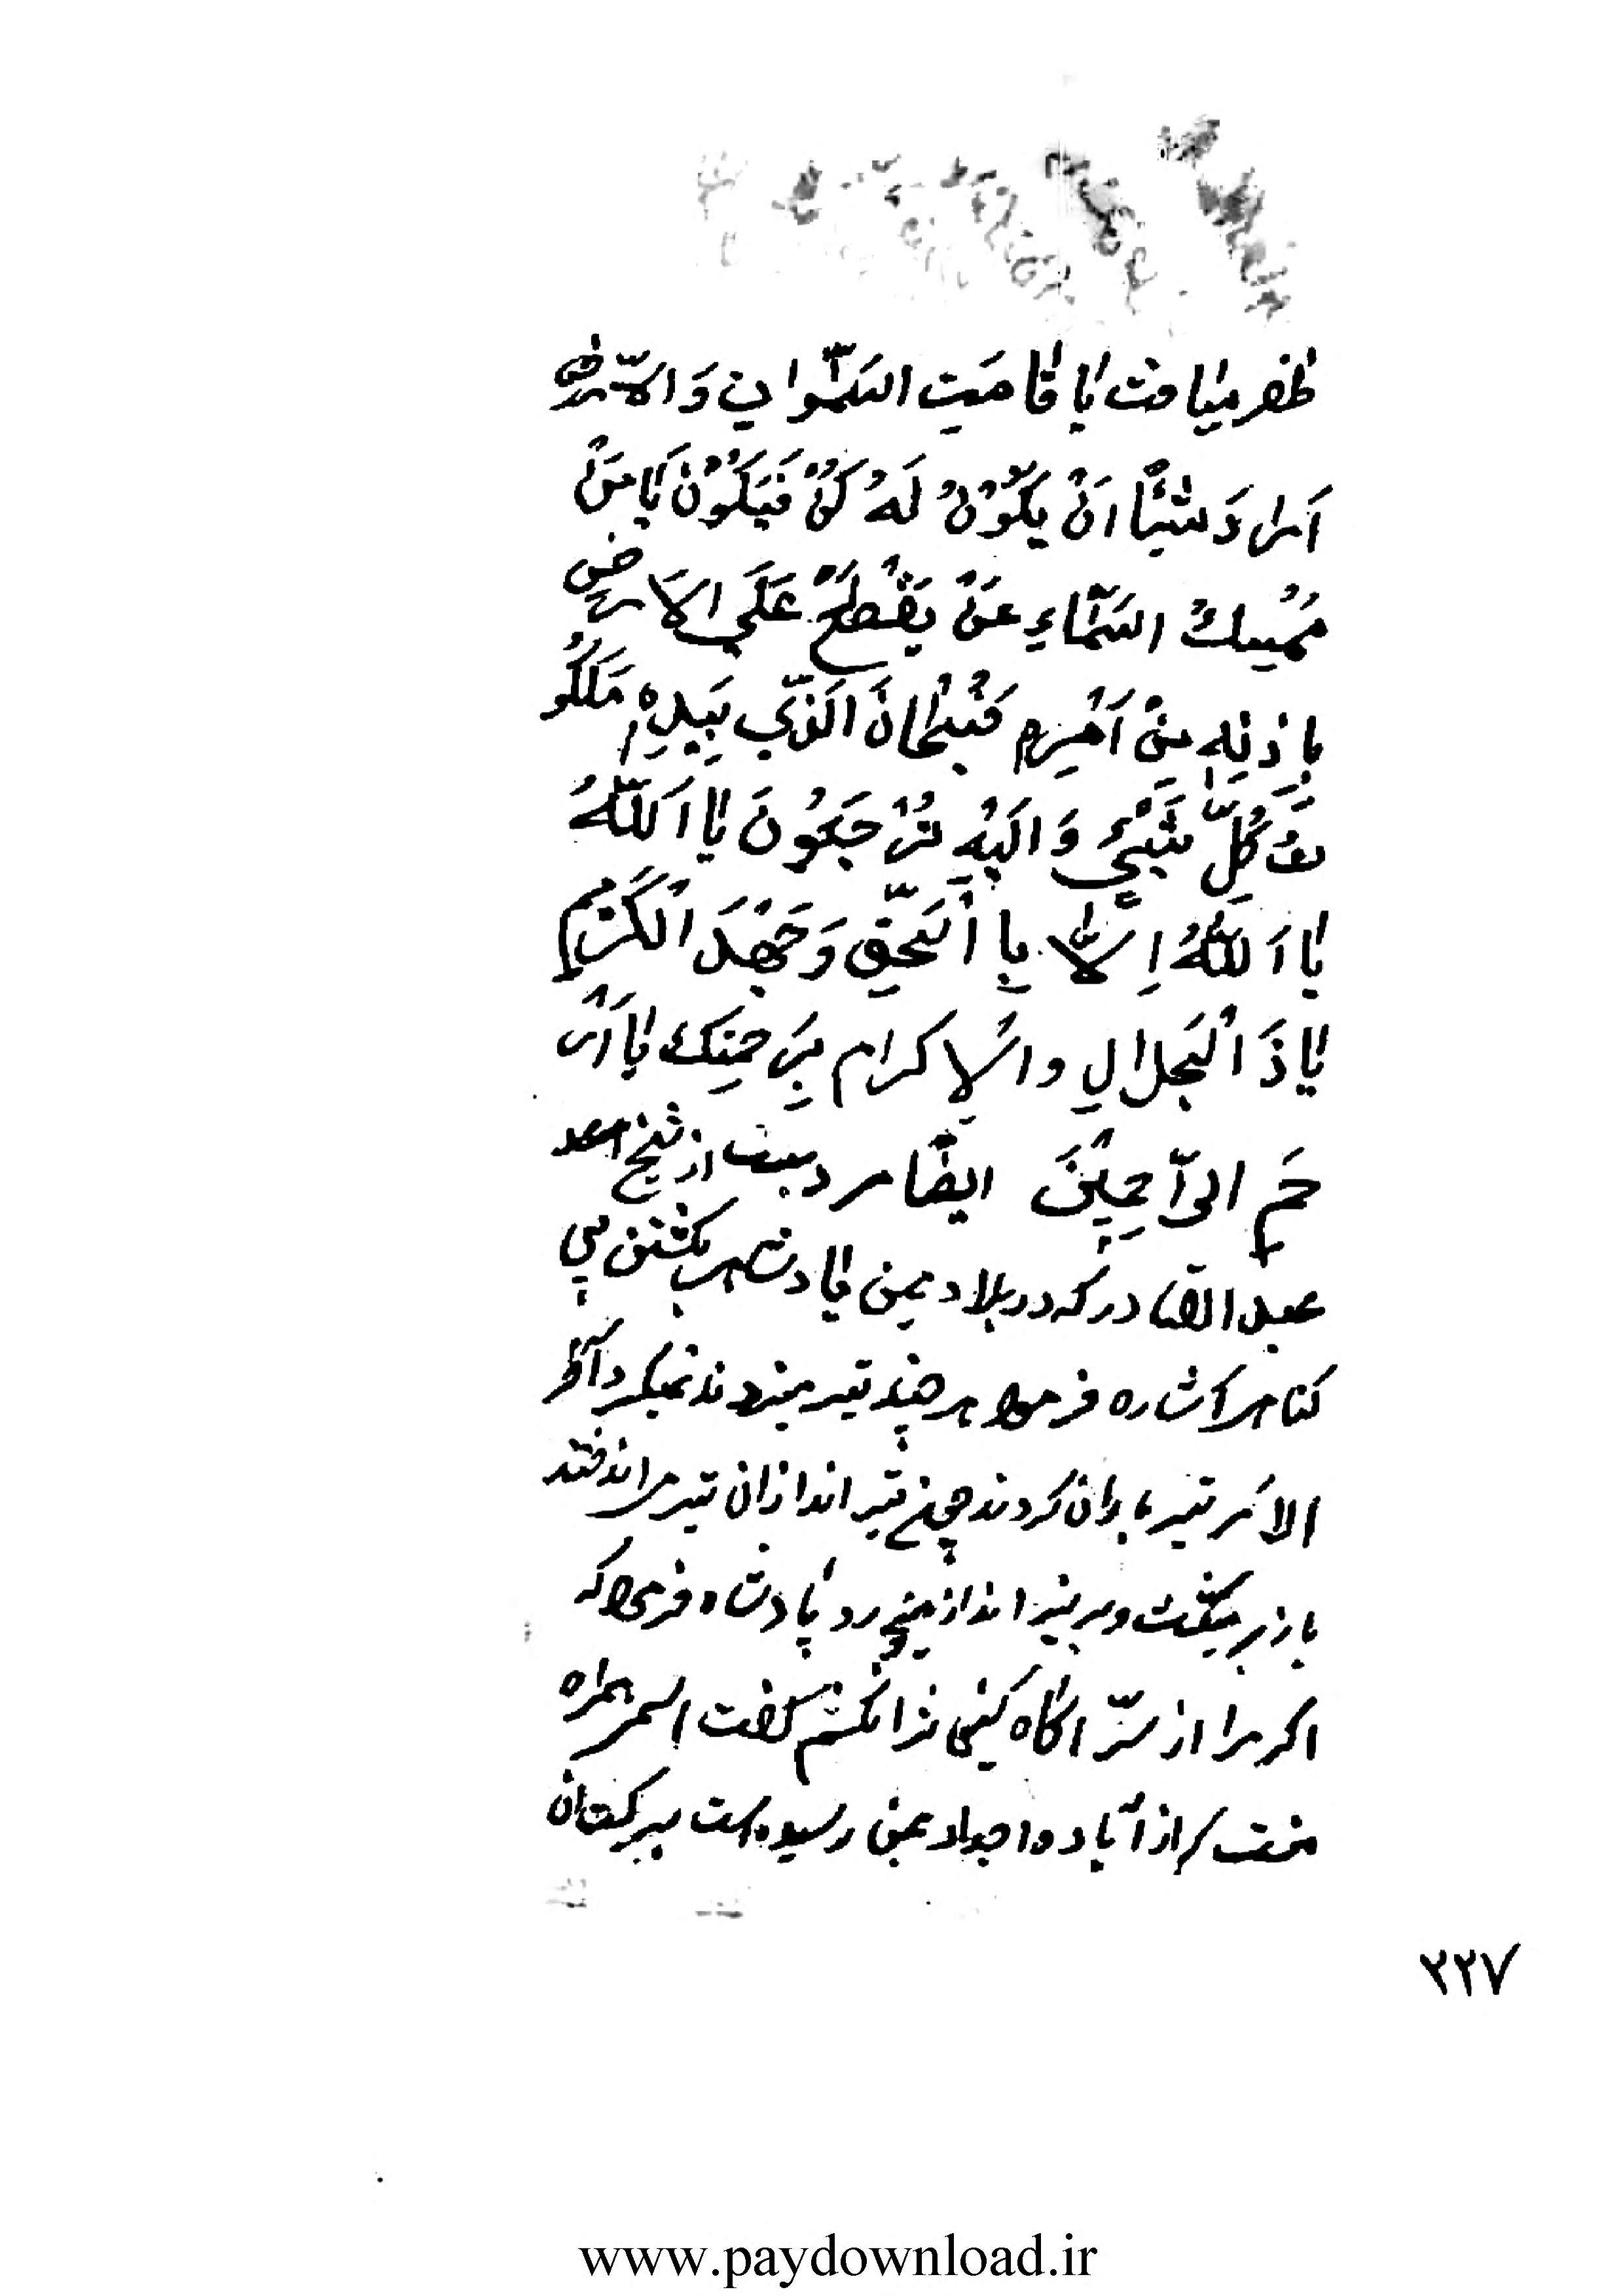 ظفر میافت یا قامَتِ السَّمٰواتِ وَالاَرض
اَرادَ شَیئًا اَنْ یَکُوْنُ لَهُ کُنْ فَیَکُوْنُ یا مَنْ
مُمْسِكُ السَّمٰاءِ عَنْ یَقْطَعُ عَلَی الاَرضِ
بِاِذنِهِ مِنْ اَمْرِهِ فَسُبْحٰانَ الَّذی بِیَدِهِ مَلَکُو
تُ کُلِّ شَیْیءٍ وَاِلَیْهِ تُرْجَعُونَ یا اَللّٰهُ
یا اَللّٰهُ اِلّا بِا الْحَقِّ وَجْهَكَ الْکَریمِ
یا ذَا لْجَلالِ والاِکرام بِرَحمَتِكَ یا اَرْ
حَمِ الرّاحِمِیْنَ ایضًا مرویست از شیخ اسعد
عبد القادر که در بلاد یمن پادشاهی بکشتن بی
کناهی را اشاره فرمود هر چند تیر میزدند نمیکرد آخر
الامر تیر باران کردند چون تیر اندازان تیر می‌انداختند
باز بر میکشت و بر تیر انداز میخورد پادشاه فرمود که
اکر مرا از سرّ آکاه کنی ترا نکشم کفت اسم همراه
منست که از آباء و اجداد بمن رسیده است ببرکت آن
۳۲۷
www.paydownload.ir